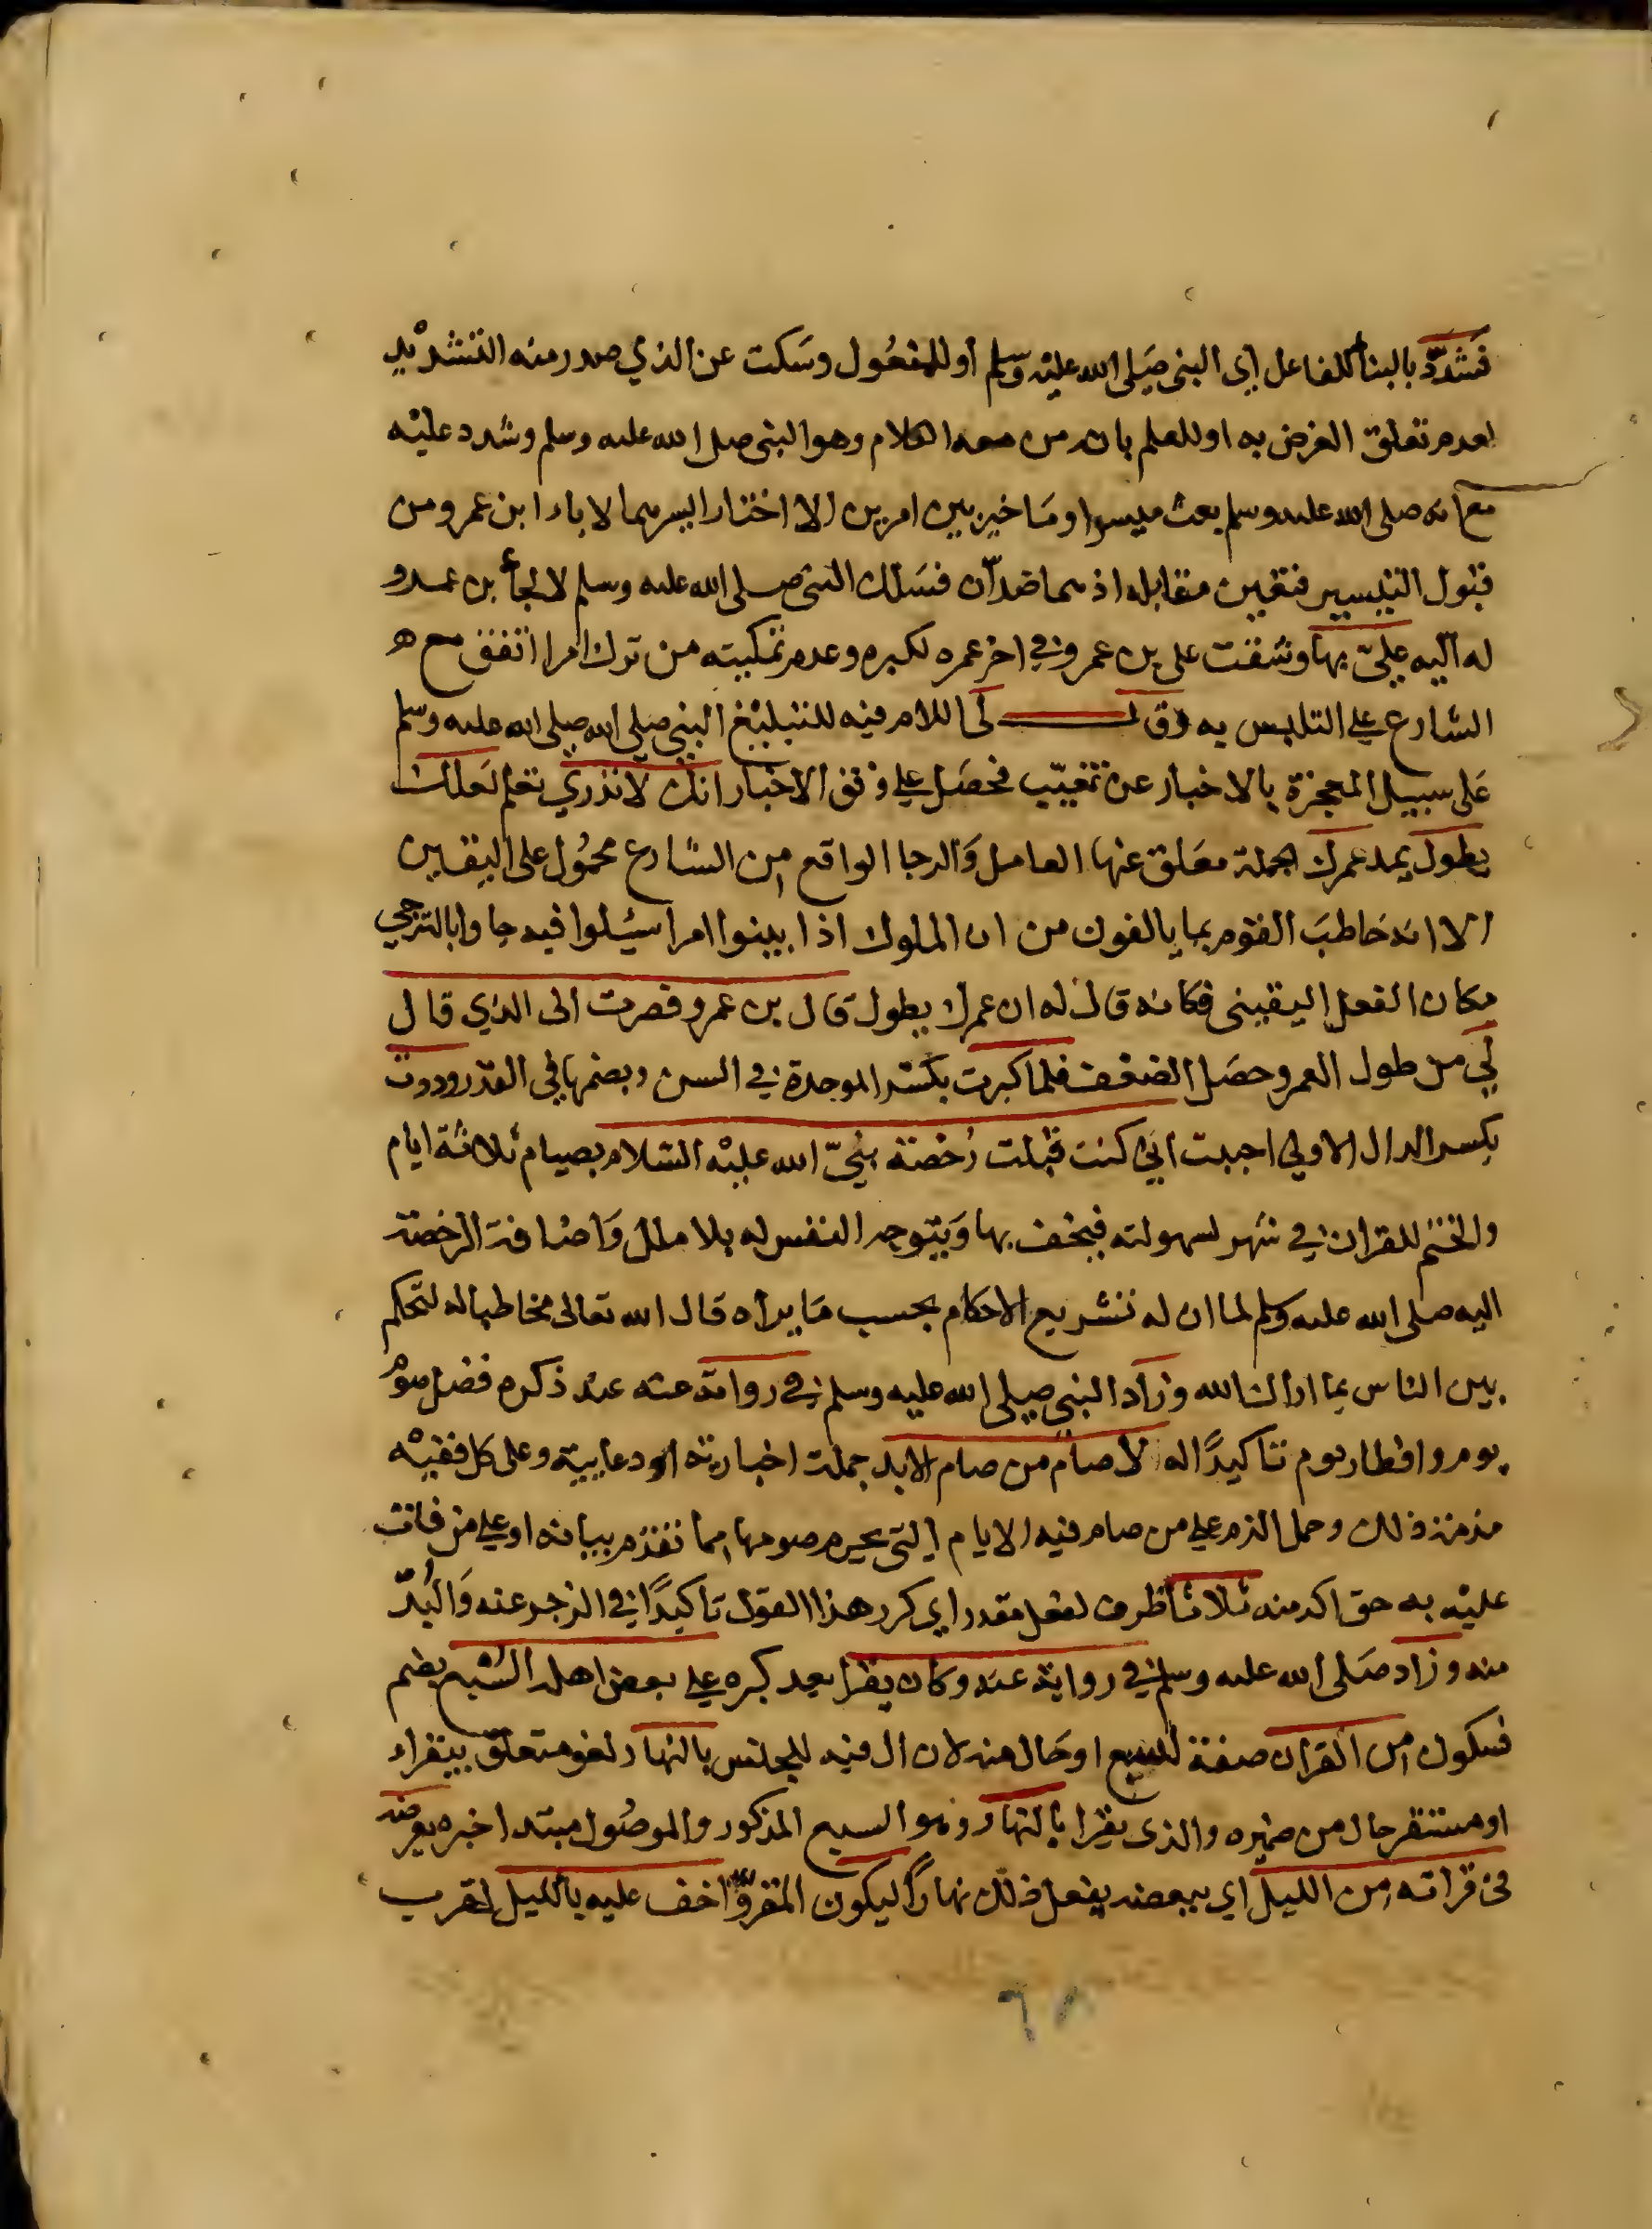 فشدّد بالبنا للفاعل اي النبي صَلى الله عليه وسلم او للمفعُول وسَكت عن الذي صدر منه التشديد
لعدم تعلق الغرض به او للعلم بان من معه الكلام وهو النبي صلى الله عليه وسلم وشدد عليْه
مع انه صلى الله عليه وسلم بعث ميسرا ومَا خير بين امرين الا اختار ايسرهما لاباء ابن عمرو من
قبول التيسير فتعين مقابله اذ هما ضدان فسَلك النبي صلى الله عليه وسلم لالجأ بن عمرو
له اليه عليّ بها وشقت على بن عمرو في اخر عمره لكبره وعدم تمكينه من ترك امر اتفق معه
الشارع علي التلبس به وقال لي اللام فيه للتبليْغ النبي صلى الله صلى الله عليه وسلم
عَلى سبيل المعجزة بالاخبار عن تغيّب فحصَل علي وفق الاخبار انك لا تدري تعلم لعلك
يطول يمد عمرك الجملة معَلق عنها العامل وَالرجا الواقع من الشارع محمُول على اليقين
الا انه خاطبَ القوم بما يالفون من ان الملوك اذا بينوا امرا سيُلوا فيه جاوا بالترجي
مكان الفعل اليقيني فكانه قال له ان عمرك يطول قال بن عمرو فصرت الى الذي قال
لي من طول العمر وحصَل الضعف فلما كبرت بكسر الموحدة في السن وبضمها في القدر وددت
بكسر الدال الاولي احببت اني كنت قبلت رُخصة نبيّ الله عليْه السَلام بصيام ثلاثة ايام
والختم للقران في شهر لسهولته فيخف بها وَيتوجه النفس له بلا ملل وَاضافة الرخصة
اليه صلى الله عليه وسلم لما ان له تشريع الاحكام بحسب مَا يراه قال الله تعالى مخاطبا له لتحكم
بين الناس بما اراك الله وزاد النبي صلى الله عليه وسلم في رواية عنه عند ذكره فضل صوْم
يوم وافطار يوم تاكيدًا له لا صام من صام الابد جملة اخبارية او دعايية وعلى كل ففيْه
مذمة ذلك وحمل الذم علي من صام فيه الايام التي يحرم صومها مما تقدم بيانه او علي من فاتت
عليْه به حق اكد منه ثلاثا ظرف لفعل مقدر اي كرر هذا القول تاكيدًا في الزجر عنه وَالبُدّ
منه وزاد صَلى الله عليه وسلم في رواية عنه وكان يقرا بعد كبره علي بعض اهله السُبع بضم
فسكون من القران صفة للسبع او حَال منه لان ال فيه للجنس بالنهار لغو متعلق بيقراء
او مستقر حال من ضميره والذي يقرا بالنهار وهو السبع المذكور والموصُول مبتدا خبره يعرضه
في قراته من الليل اي ببعضه يفعل ذلك نهارًا ليكون المقروّ اخف عليه بالليل لقرب
٦٨